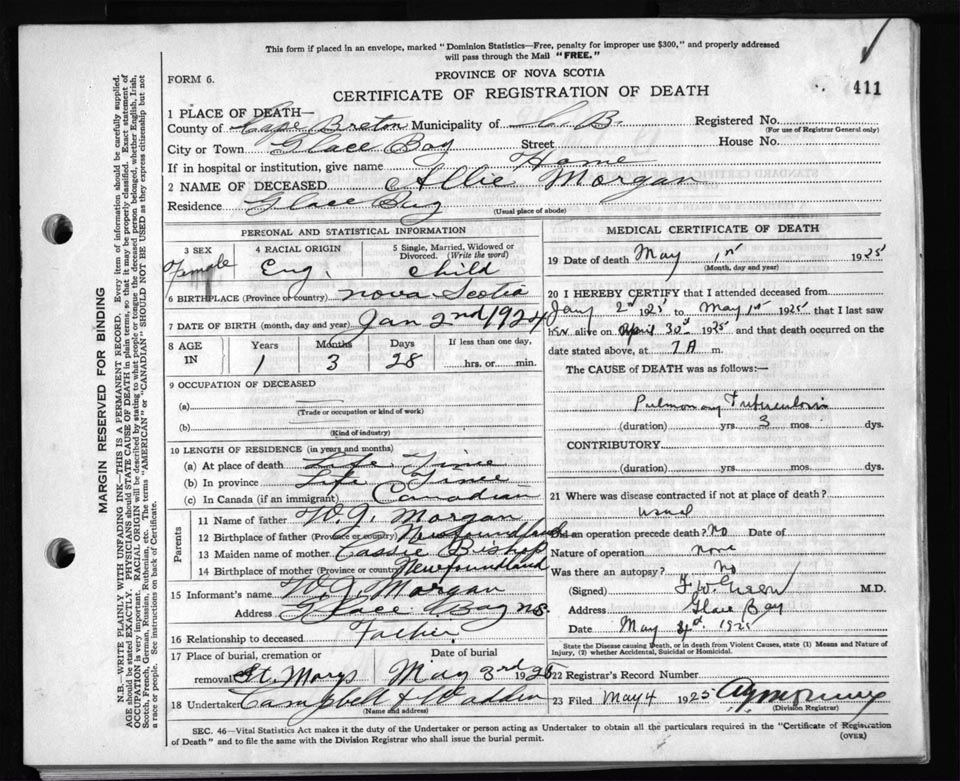 This form if placed in an envelope, marked "Dominion Statistics—Free, penalty for improper use $300," and properly addressed
will pass through the Mail "FREE."
FORM 6.
PROVINCE OF NOVA SCOTIA
CERTIFICATE OF REGISTRATION OF DEATH
411
1 PLACE OF DEATH—
County of Cape Breton Municipality of C.B. Registered No.
(For use of Registrar General only)
City or Town Glace Bay Street House No.
If in hospital or institution, give name Home
2 NAME OF DECEASED Allie Morgan
Residence Glace Bay
(Usual place of abode)
PERSONAL AND STATISTICAL INFORMATION
3 SEX Female
4 RACIAL ORIGIN Eng.
5 Single, Married, Widowed or Divorced. (Write the word) Child
6 BIRTHPLACE (Province or country) Nova Scotia
7 DATE OF BIRTH (month, day and year) Jan 2nd 1924
8 AGE IN Years Months Days If less than one day,
1 3 28 hrs. or min.
9 OCCUPATION OF DECEASED
(a)
(Trade or occupation or kind of work)
(b)
(Kind of industry)
10 LENGTH OF RESIDENCE (in years and months)
(a) At place of death Life Time
(b) In province Life Time
(c) In Canada (if an immigrant) Canadian
Parents
11 Name of father W. J. Morgan
12 Birthplace of father (Province or country) Newfoundland
13 Maiden name of mother Cassie Bishop
14 Birthplace of mother (Province or country) Newfoundland
15 Informant's name W. J. Morgan
Address Glace Bay N.S.
16 Relationship to deceased Father
17 Place of burial, cremation or removal St. Marys
Date of burial May 3rd 1925
18 Undertaker Campbell &
(Name and address)
MEDICAL CERTIFICATE OF DEATH
19 Date of death May 1st 1925
(Month, day and year)
20 I HEREBY CERTIFY that I attended deceased from
Jany 2nd 1925 to May 1st 1925 that I last saw
h alive on April 30th 1925 and that death occurred on the
date stated above, at 7 A m.
The CAUSE of DEATH was as follows:—
Pulmonary Tuberculosis
(duration) yrs. 3 mos. dys.
CONTRIBUTORY
(duration) yrs. mos. dys.
21 Where was disease contracted if not at place of death?
usual
Did an operation precede death? No Date of
Nature of operation none
Was there an autopsy? No
(Signed) F. W. Green M.D.
Address Glace Bay
Date May 1925
State the Disease causing Death, or in death from Violent Causes, state (1) Means and Nature of
Injury, (2) whether Accidental, Suicidal or Homicidal.
22 Registrar's Record Number
23 Filed May 4 1925
(Division Registrar)
SEC. 46—Vital Statistics Act makes it the duty of the Undertaker or person acting as Undertaker to obtain all the particulars required in the "Certificate of Registration
of Death" and to file the same with the Division Registrar who shall issue the burial permit.
(OVER)
MARGIN RESERVED FOR BINDING
N.B.—WRITE PLAINLY WITH UNFADING INK—THIS IS A PERMANENT RECORD. Every item of information should be carefully supplied.
AGE should be stated EXACTLY. PHYSICIANS should STATE CAUSE OF DEATH in plain terms, so that it may be properly classified. Exact statement of
OCCUPATION is very important. RACIAL ORIGIN will be described by stating to what people or tongue the deceased person belonged, whether English, Irish,
Scotch, French, German, Russian, Ruthenian, etc. The terms "AMERICAN" or "CANADIAN" SHOULD NOT BE USED as they express citizenship but not
a race or people. See instructions on back of Certificate.